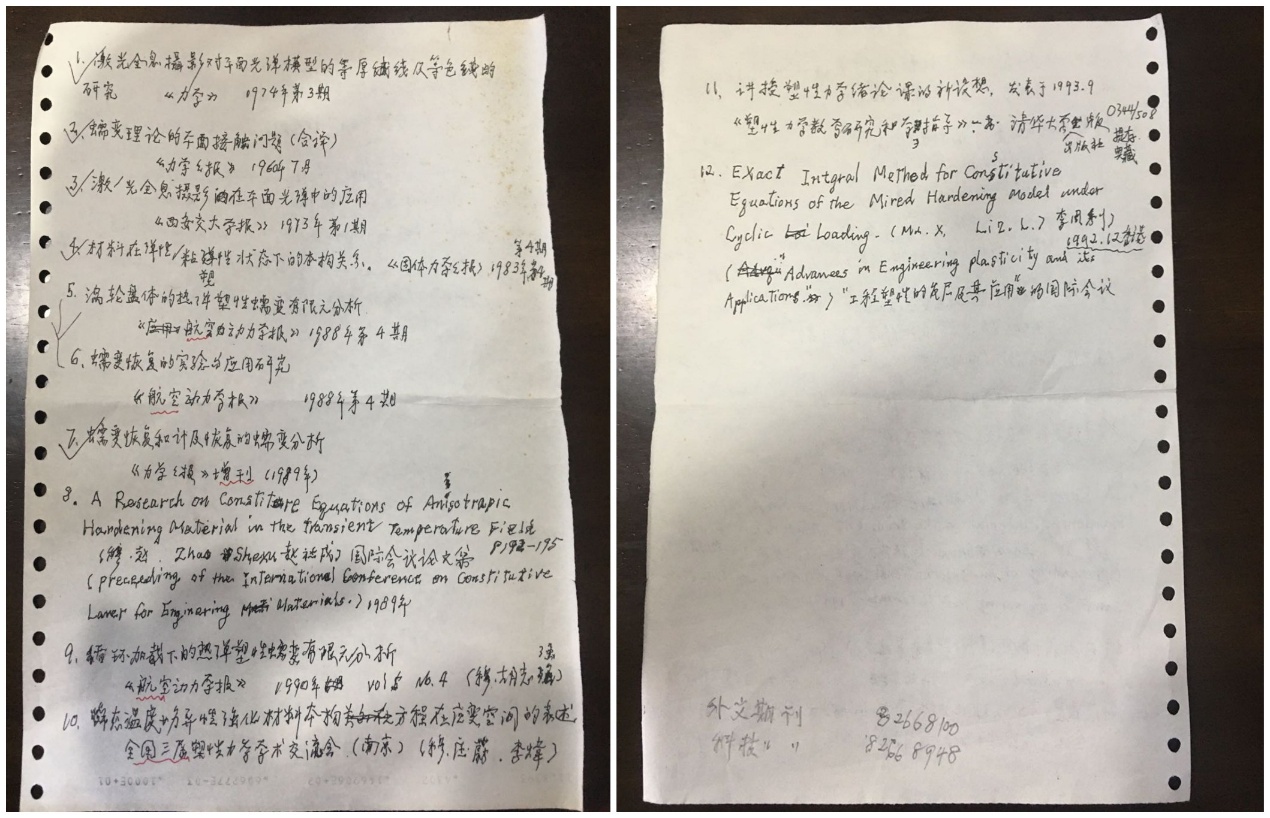 1. 激光全息摄影对平面光弹模型的等厚线及等色线的
研究 《力学》 1974年第3期
2. 蠕变理论的平面接触问题(合译)
《力学学报》 1960年7月
3. 激光全息摄影在平面光弹中的应用
《西安交大学报》 1973年第1期
4. 材料在弹性/粘塑性状态下的本构关系。《固体力学学报》1983年第4期
5. 涡轮盘体的热弹塑性蠕变有限元分析
《航空动力学报》 1988年第4期
6. 蠕变恢复的实验与应用研究
《航空动力学报》 1988年第4期
7. 蠕变恢复和计及恢复的蠕变分析
《力学学报》增刊 (1989年)
8. A Research on Constiture Equations of Anisotrapic
Hardening Material in the transient Temperature Field
(穆.赵. Zhao Shexu 赵社戌) 国际会议论文集 P192-195
(preceeding of the International Conference on Constitutive
Lawer for Enginering Materials.) 1989年
9. 循环加载下的热弹塑性蠕变有限元分析
《航空动力学报》 1990年 vol 5 No. 4 (穆.胡志强)
10. 瞬态温度场异性强化材料本构方程在应变空间的表述
全国三届塑性力学学术交流会.(南京) (穆.庄蔚.李烽)
11. 讲授塑性力学绪论课的新设想, 发表于1993.9
《塑性力学教学研究和学习指导》一书 清华大学出版社
0344/508
提存
典藏
12. EXact Intgral Method for Constitutive
Equations of the Mired Hardening Model under
Cyclic Loading. (Mu. X, Li Z. L.) 李周利)
1992.12
(Advances in Engineering plasticity and its
Applications") "工程塑性的发展及其应用"的国际会议
外文期刊 82668100
科技" " 82668948